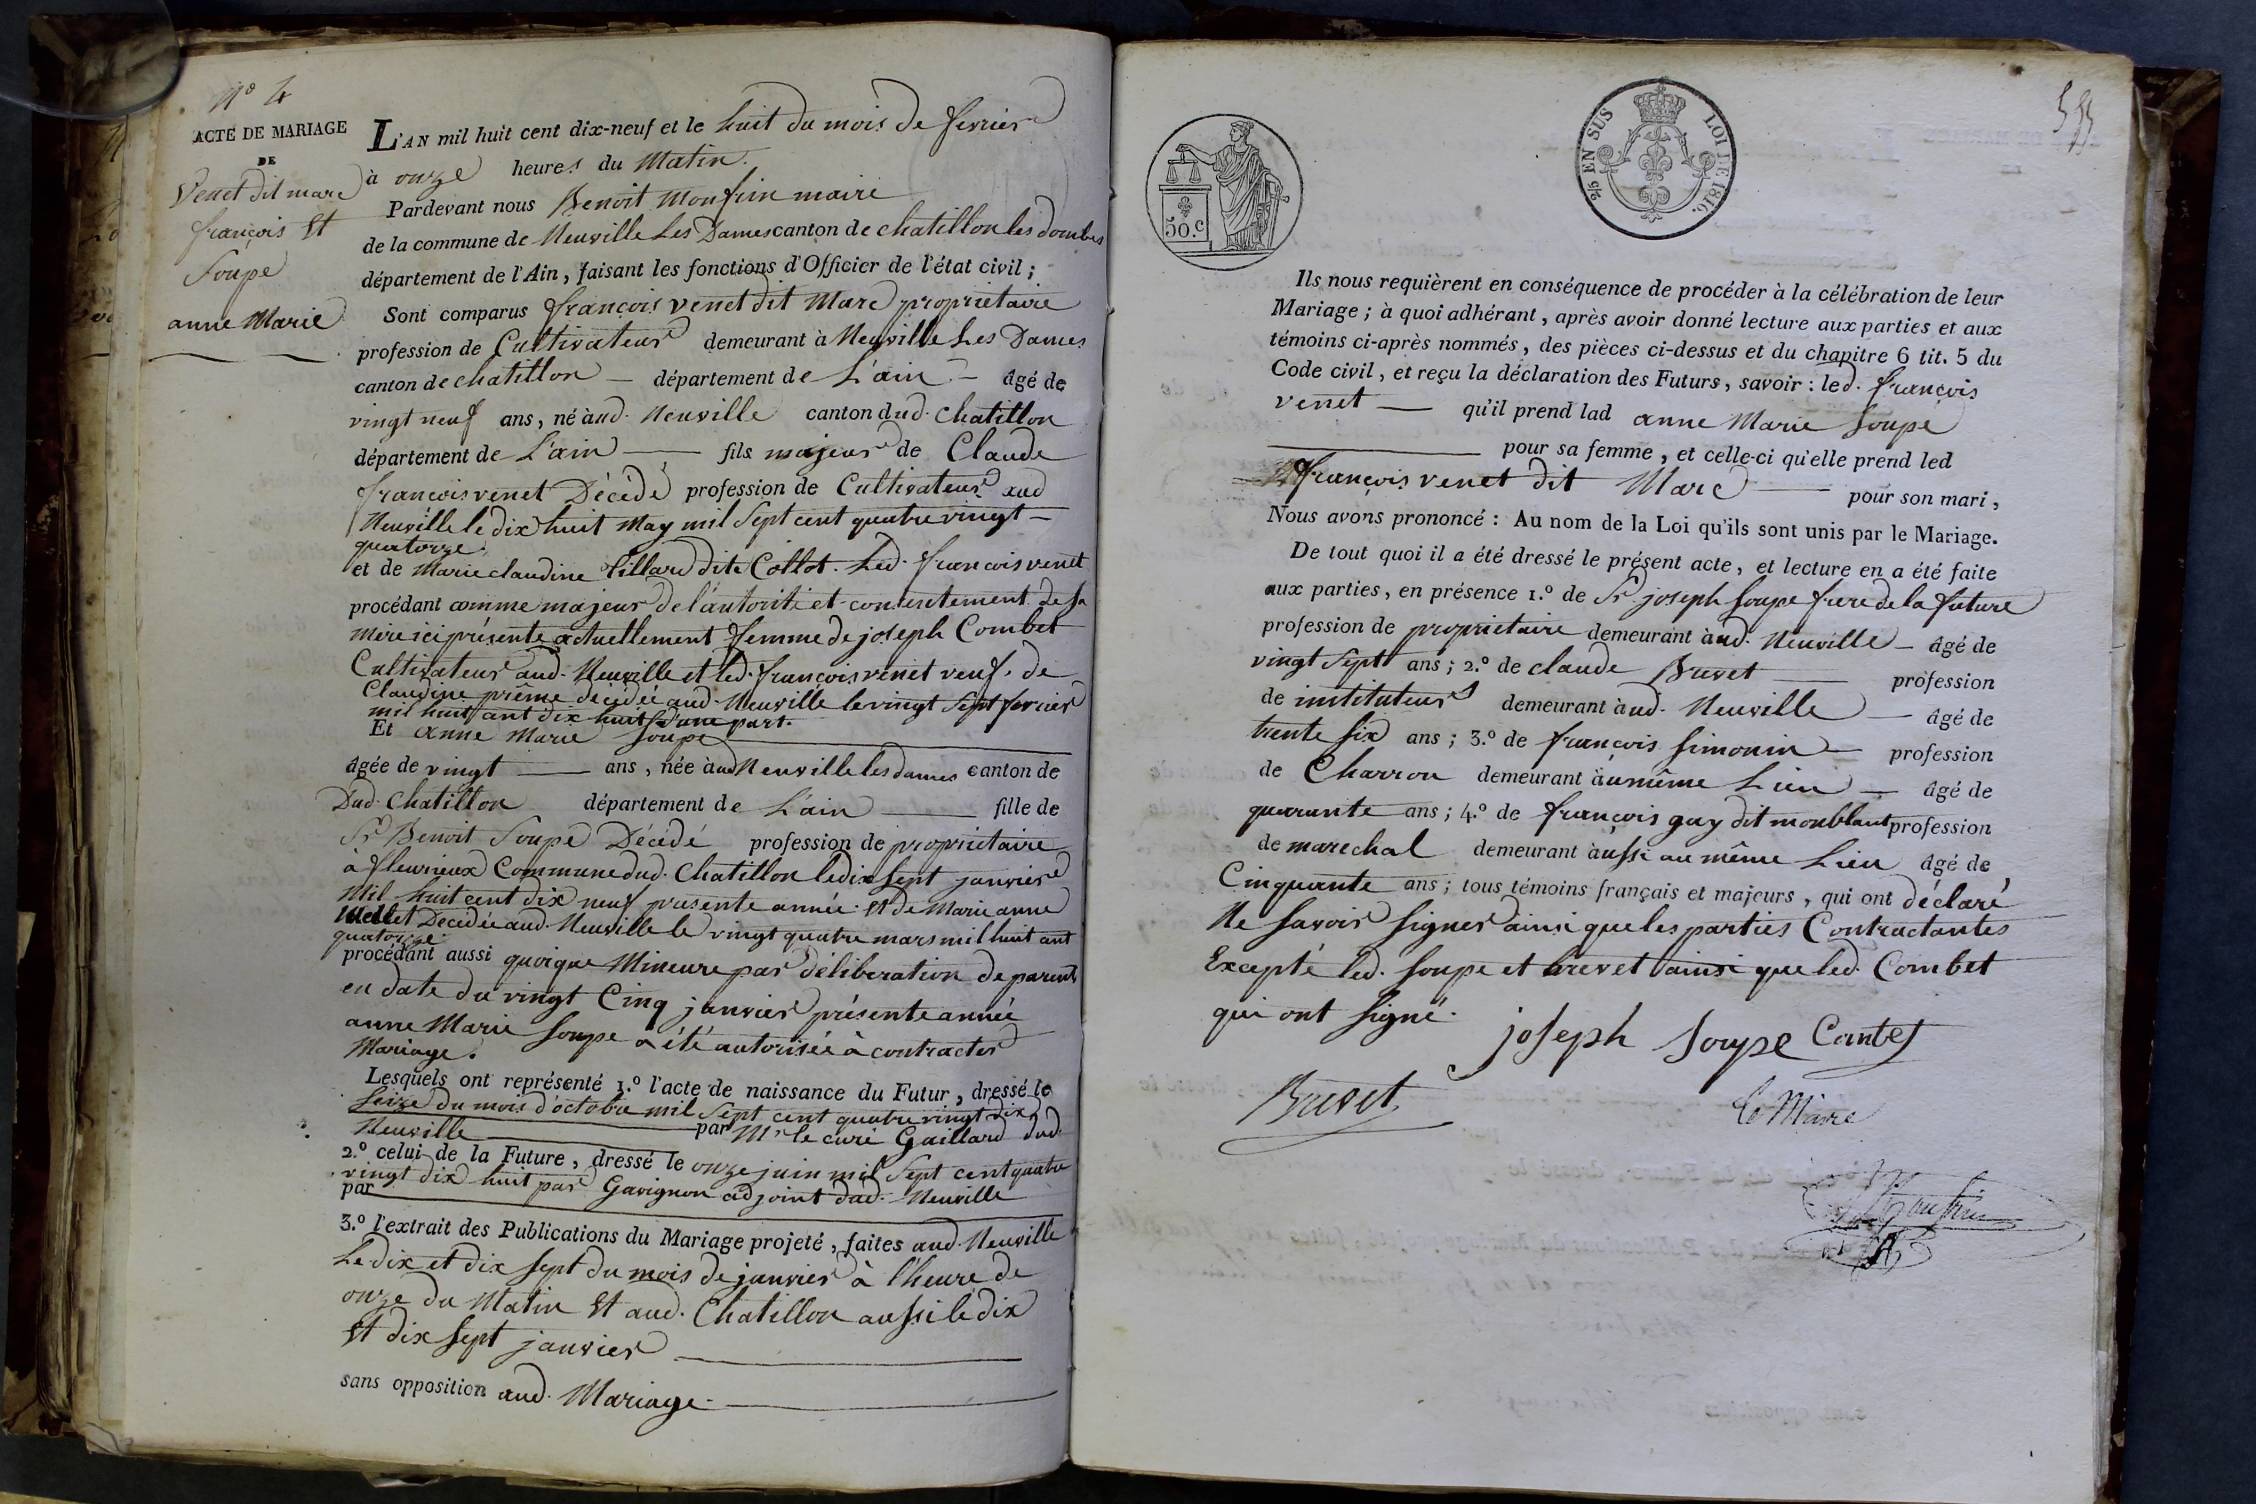 N° 4
ACTE DE MARIAGE
DE
Venet dit marc
françois Et
Soupe
anne Marie
L'AN mil huit cent dix-neuf et le huit du mois de fevrier
à onze heures du Matin.
Pardevant nous Benoit Monfrin maire
de la commune de Neuville Les Dames canton de chatillon les dombes
département de l'Ain, faisant les fonctions d'Officier de l'état civil;
Sont comparus françois venet dit Marc propriétaire
profession de Cultivateur demeurant à Neuville Les Dames
canton de chatillon — département de L'ain — âgé de
vingt neuf ans, né aud. Neuville canton dud. Chatillon
département de L'ain — fils majeur de Claude
françois venet Décédé profession de Cultivateur aud
Neuville le dix huit May mil Sept cent quatre vingt —
quatorze.
et de Marie claudine tillard dite Collot. Led. françois venet
procédant comme majeur de l'autorité et consentement de sa
mère ici présente actuellement femme de joseph Combet
Cultivateur aud. Neuville et led. françois venet veuf. de
Claudine prême decédée aud. Neuville le vingt Sept fevrier
mil huit cent dix huit d'une part.
Et anne Marie Soupe
âgée de vingt — ans, née aud Neuville les dames canton de
Dud. Chatillon département de L'ain — fille de
Sr Benoit Soupe Décédé profession de propriétaire
à fleurieux Commune dud. Chatillon le dix Sept janvier
Mil huit cent dix neuf presente année. Et de Marie anne
Decédée aud. Neuville le vingt quatre mars mil huit cent
quatorze.
procédant aussi quoique Mineure par déliberation de parents
en date du vingt Cinq janvier présente année
anne Marie Soupe a été autorisée à contracter
Mariage.
Lesquels ont représenté 1.º l'acte de naissance du Futur, dressé le
seize du mois d'octobre mil Sept cent quatre vingt dix
Neuville — par Mr le curé Gaillard dud.
2.º celui de la Future, dressé le onze juin mil Sept cent quatre
vingt dix huit par Gavignon adjoint dud. Neuville
par
3.º l'extrait des Publications du Mariage projeté, faites aud. Neuville
Le dix et dix Sept du mois de janvier à l'heure de
onze du Matin Et aud. Chatillon aussi le dix
Et dix Sept janvier
sans opposition aud. Mariage.
50.c
2/5 EN SUS
LOI DE 1816.
Ils nous requièrent en conséquence de procéder à la célébration de leur
Mariage; à quoi adhérant, après avoir donné lecture aux parties et aux
témoins ci-après nommés, des pièces ci-dessus et du chapitre 6 tit. 5 du
Code civil, et reçu la déclaration des Futurs, savoir: led. françois
venet — qu'il prend lad anne Marie Soupe
pour sa femme, et celle-ci qu'elle prend led
françois venet dit Marc — pour son mari,
Nous avons prononcé: Au nom de la Loi qu'ils sont unis par le Mariage.
De tout quoi il a été dressé le présent acte, et lecture en a été faite
aux parties, en présence 1.º de Sr joseph Soupe frere de la future
profession de propriétaire demeurant aud. Neuville — âgé de
vingt Sept ans; 2.º de claude Buvet — profession
de instituteur demeurant aud. Neuville — âgé de
trente Six ans; 3.º de françois Simonin — profession
de Charron demeurant au même Lieu — âgé de
quarante ans; 4.º de françois guy dit monblant profession
de marechal demeurant aussi au même Lieu âgé de
Cinquante ans; tous témoins français et majeurs, qui ont déclaré
Ne Savoir Signer ainsi que les parties Contractantes
Excepté led. Soupe et buvet ainsi que led. Combet
qui ont Signé.
joseph soupe Combet
Buvet
Le Maire
Monfrin